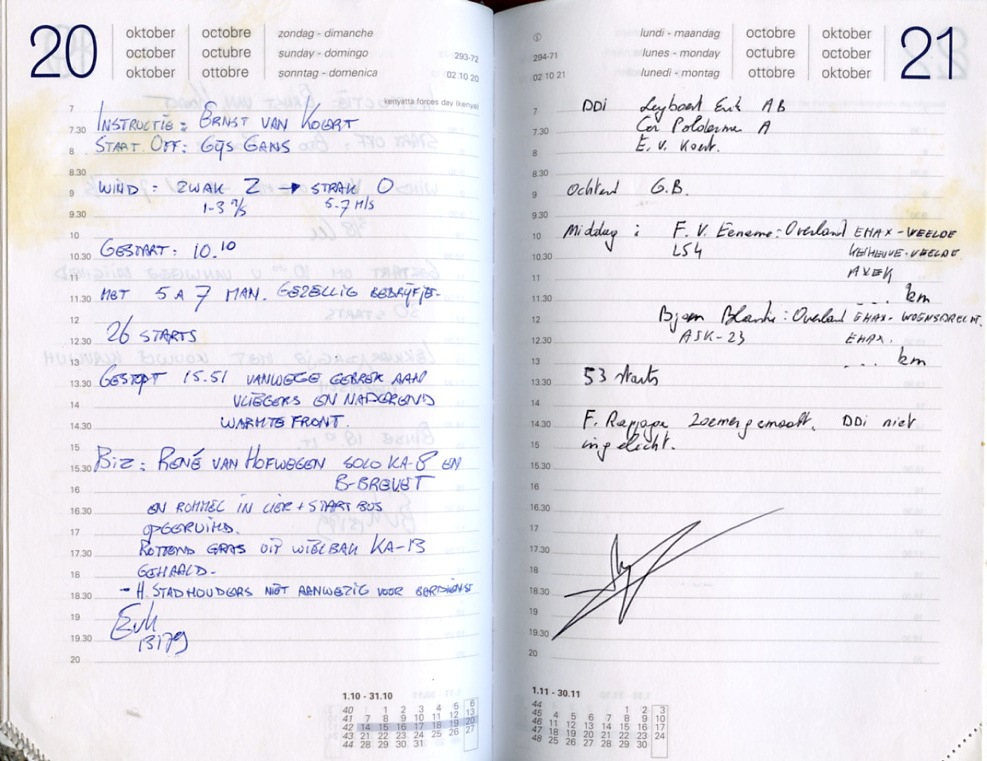 20
oktober octobre zondag - dimanche
october octubre sunday - domingo
oktober ottobre sonntag - domenica
293-72
02 10 20
kenyatta forces day (kenya)
7
7.30
8
8.30
9
9.30
10
10.30
11
11.30
12
12.30
13
13.30
14
14.30
15
15.30
16
16.30
17
17.30
18
18.30
19
19.30
20
INSTRUCTIE: ERNST VAN KOERT
START OFF: GIJS GANS
WIND: ZWAK Z → STRAK O
1-3 M/S 5-7 M/S
GESTART: 10.10
MET 5 A 7 MAN. GEZELLIG BEDRIJFJE.
26 STARTS
GESTOPT 15.51 VANWEGE GEBREK AAN
VLIEGERS EN NADEREND
WARMTE FRONT.
BIZ: RENÉ VAN HOFWEGEN SOLO KA-8 EN
B-BREVET
EN ROMMEL IN LIER + START BUS
OPGERUIMD.
ROTTEND GRAS UIT WIELBAK KA-13
GEHAALD.
- H. STADHOUDERS NIET AANWEZIG VOOR
1.10 - 31.10
40 1 2 3 4 5 6
41 7 8 9 10 11 12 13
42 14 15 16 17 18 19 20
43 21 22 23 24 25 26 27
44 28 29 30 31
21
lundi - maandag octobre oktober
lunes - monday octubre october
lunedi - montag ottobre oktober
294-71
02 10 21
7
7.30
8
8.30
9
9.30
10
10.30
11
11.30
12
12.30
13
13.30
14
14.30
15
15.30
16
16.30
17
17.30
18
18.30
19
19.30
20
DDI AB
Cor A
E. V. Koert.
Ochtend G.B.
Middag: F. V. Eename: Overland EHAX - WEELDE
LS4 - WEELDE
... km
Bjorn: Overland EHAX - WOENSDRECHT.
ASK-23 EHAX.
... km
53 starts
F. zoemer gemaakt. DDI niet
ingelicht.
1.11 - 30.11
44 1 2 3
45 4 5 6 7 8 9 10
46 11 12 13 14 15 16 17
47 18 19 20 21 22 23 24
48 25 26 27 28 29 30